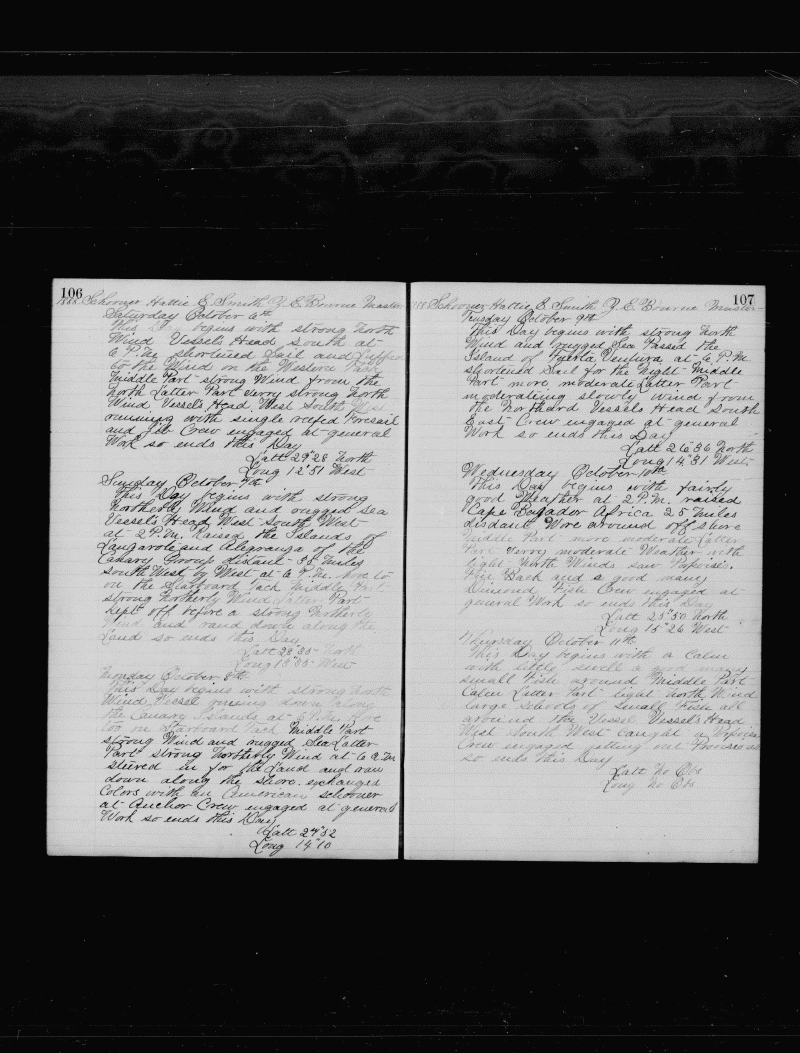 106
1888 Schooner Hattie E Smith Z. E. Bourne Master
Saturday October 6th
This Day begins with strong North
Wind Vessels Head South at
6 P.M. shortened Sail and Luffed
to the Wind on the Western Tack
Middle Part strong Wind from the
North Latter Part verry strong North
Wind Vessels Head West South West
running with single reefed Foresail
and Jib Crew engaged at general
Work so ends this Day
Latt 29°28 North
Long 12°51 West
Sunday October 7th
This Day begins with strong
Northerly Wind and rugged sea
Vessels Head West South West
at 2 P.M. raised the Islands of
Langarote and Alegranga of the
Canary Group distant 30 Miles
South West by West at 6 P.M. hove to
on the Starboard Tack Middle Part
strong Northerly Wind Latter Part
kept off before a strong Northerly
Wind and rand down along the
Land so ends this Day
Latt 28°35 North
Long 13°35 West
Monday October 8th
This Day begins with strong North
Wind Vessel runing down along
the Canary Islands at P.M. hove
too on Starboard Tack Middle Part
strong Wind and rugged Sea Latter
Part Strong Northerly Wind at 6 A.M
steered in for the Land and ran
down along the shore. exchanged
Colors with an American schooner
at Anchor Crew engaged at general
Work so ends this Day
Latt 27°52
Long 14°10
107
1888 Schooner Hattie E Smith Z. E. Bourne Master
Tuesday October 9th
This Day begins with strong North
Wind and rugged Sea Passed the
Island of Fuerta Ventura at 6 P.M
shortened Sail for the Night Middle
Part more moderate Latter Part
moderating slowly wind from
the Northard Vessels Head South
East Crew engaged at general
Work so ends this Day
Latt 26°36 North
Long 14°31 West
Wednesday October 10th
This Day begins with fairly
good Weather at 2 P.M. raised
Cape Bagador Africa 25 Miles
distant Wore around off shore
Middle Part more moderate Latter
Part verry moderate Weather with
light North Winds saw Popoise.
Fin Back and a good many
Dimond Fish Crew engaged at
general Work so ends this Day
Latt 25°50 North
Long 15°26 West
Thursday October 11th
This Day begins with a Calm
with little swell a good many
small Fish around Middle Part
Calm Latter Part light North Wind
large Schools of Small Fish all
around the Vessel Vessel's Head
West South West Caught a Popoise
Crew engaged getting out
so ends this Day
Latt No Obs
Long No Obs